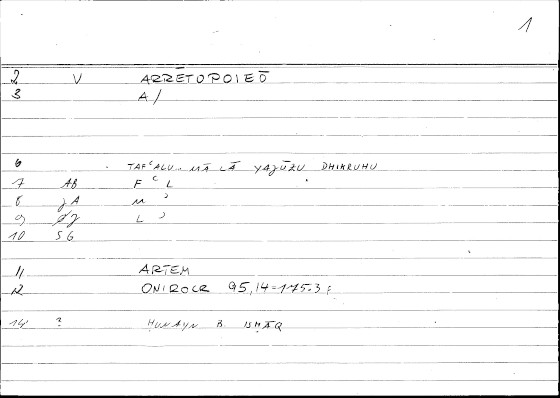 1
2 V ARRĒTOPOIEŌ
3 A/
6 TAFʿALU.. MĀ LĀ YAJŪZU DHIKRUHU
7 AB F ʿ L
8 JA M ʾ
9 L ʾ
10 SG
11 ARTEM
12 ONIROCR 95,14=175.3 ;
14 ? ḤUNAYN B. ISḤĀQ